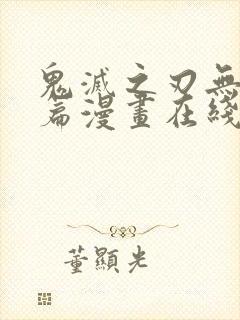 鬼滅之刃無
篇漫畫在綫
董顯光